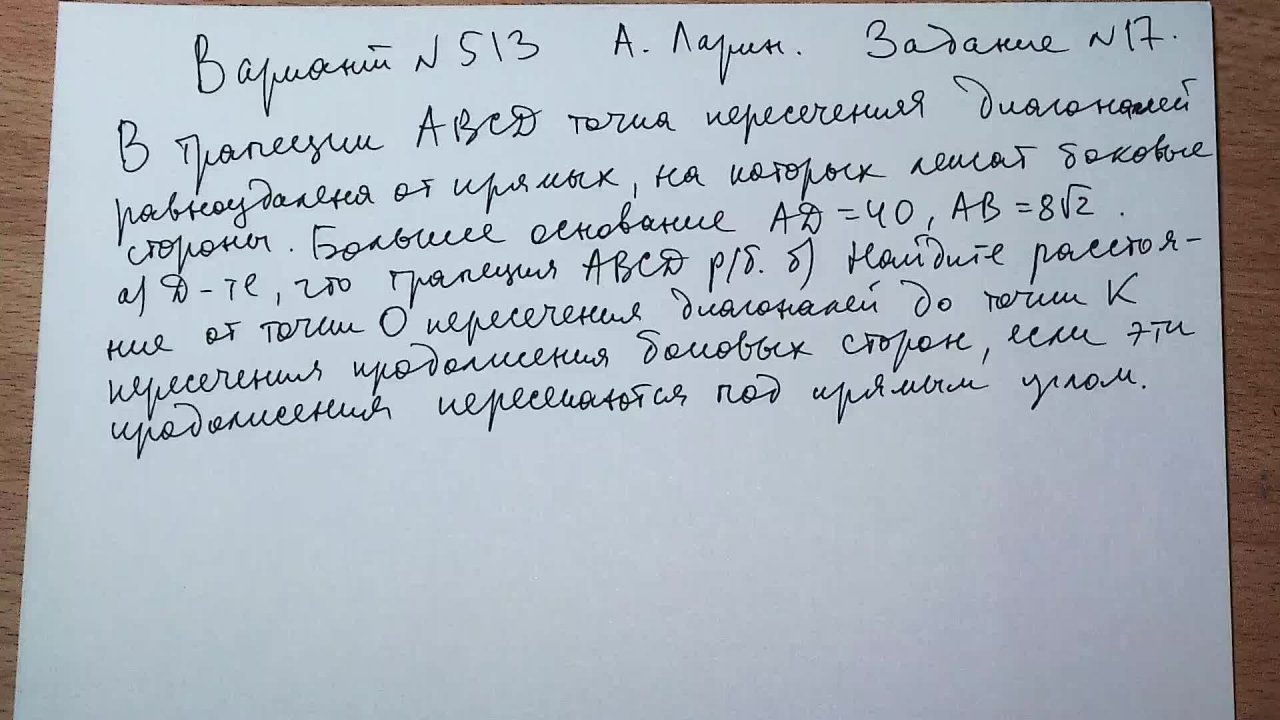 Вариант N 513 А. Ларин. Задание N17.
В трапеции ABCD точка пересечения диагоналей
равноудалена от прямых, на которых лежат боковые
стороны. Большее основание AD = 40, AB = 8√2.
а) Д-те, что трапеция ABCD р/б. б) Найдите расстоя-
ние от точки O пересечения диагоналей до точки K
пересечения продолжения боковых сторон, если эти
продолжения пересекаются под прямым углом.